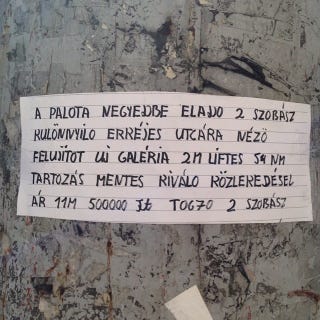 A PALOTA NEGYEDBE ELADO 2 SZOBÁSZ
KULÖNNYILO ERRÉJES UTCÁRA NÉZÖ
FELUJÍTOT UJ GALÉRIA 2M LIFTES 54 NM
TARTOZÁS MENTES KIVÁLO KÖZLEREDÉSEL
ÁR 11M 500000 Ft TOG70 2 SZOBÁSZ